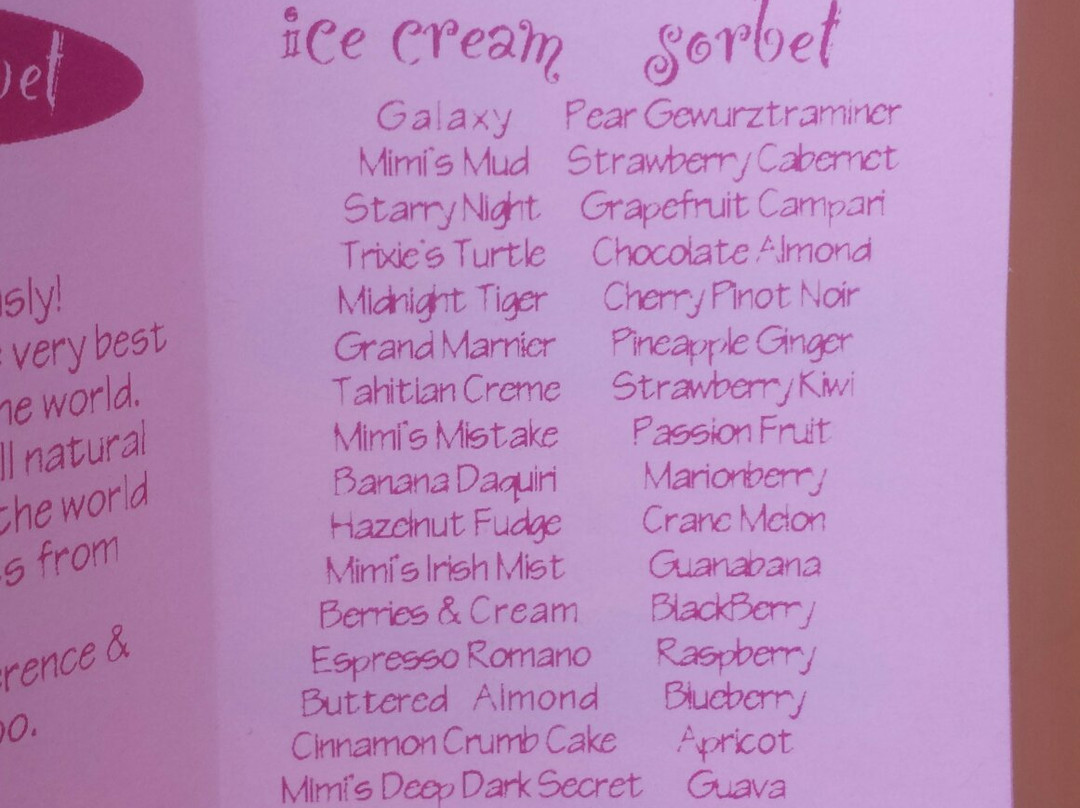 bet
usly!
very best
he world.
ll natural
the world
s from
erence &
oo.
ice cream
Galaxy
Mimi's Mud
Starry Night
Trixie's Turtle
Midnight Tiger
Grand Marnier
Tahitian Creme
Mimi's Mistake
Banana Daquiri
Hazelnut Fudge
Mimi's Irish Mist
Berries & Cream
Espresso Romano
Buttered Almond
Cinnamon Crumb Cake
Mimi's Deep Dark Secret
sorbet
Pear Gewurztraminer
Strawberry Cabernet
Grapefruit Campari
Chocolate Almond
Cherry Pinot Noir
Pineapple Ginger
Strawberry Kiwi
Passion Fruit
Marionberry
Crane Melon
Guanabana
BlackBerry
Raspberry
Blueberry
Apricot
Guava